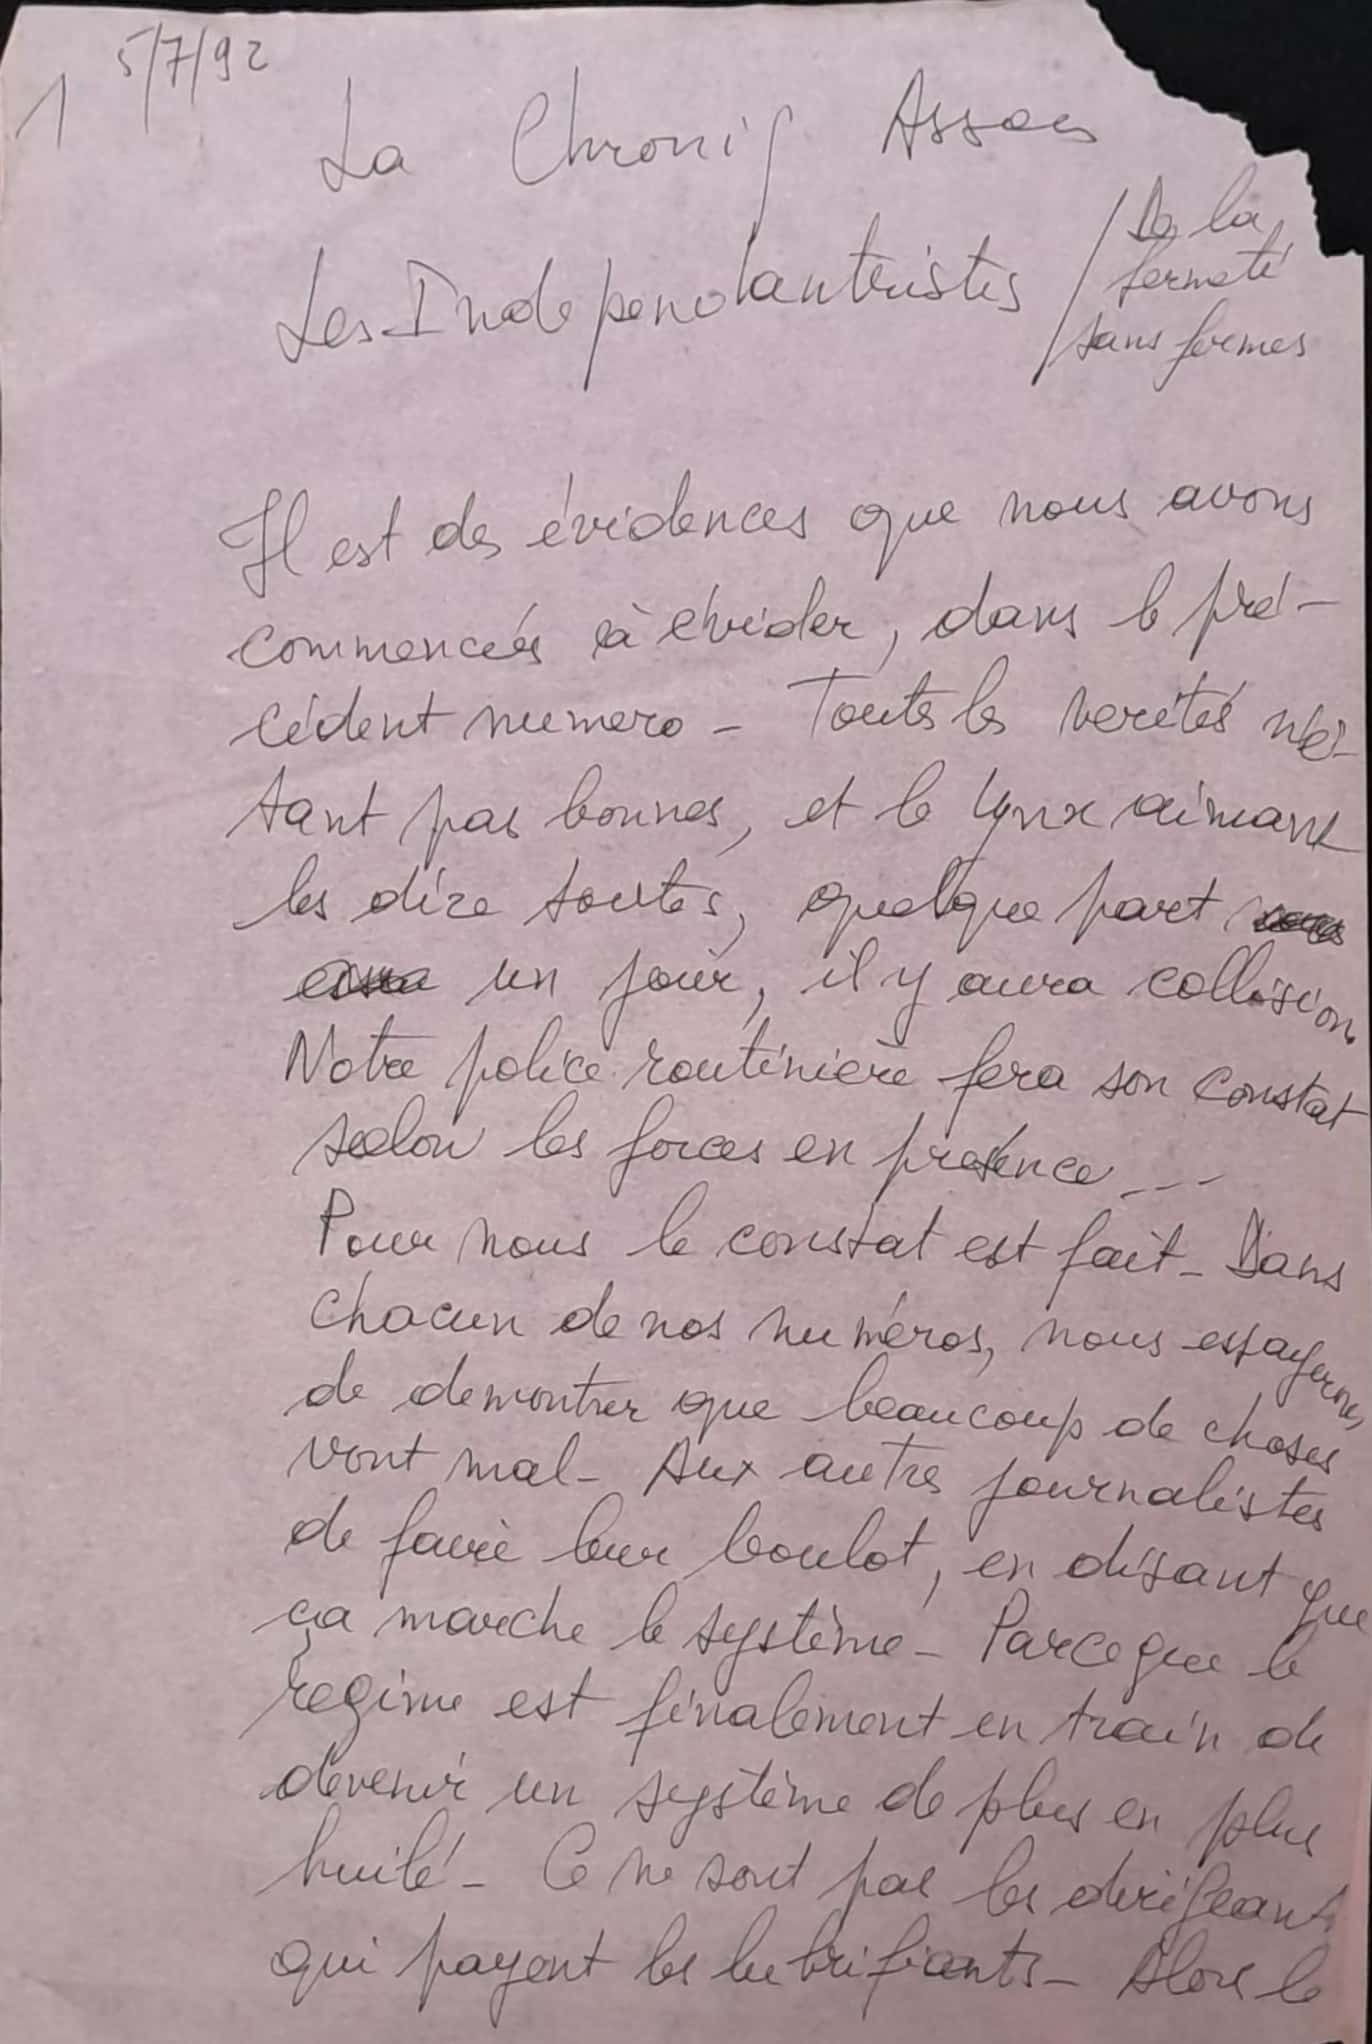 1 5/7/92
La Chroniq Assas
Les Independanteristes / De la
fermeté
sans fermes
Il est des évidences que nous avons
commencés à évider, dans le pré-
cédent numero - Toutes les verités n'é-
tant pas bonnes, et le lynx aimant
les dire toutes, quelque part
un jour, il y aura collision.
Notre police routinière fera son constat
selon les forces en présence ---
Pour nous le constat est fait - Dans
chacun de nos numéros, nous essayerons
de demontrer que beaucoup de choses
vont mal - Aux autres journalistes
de faire leur boulot, en disant que
ça marche le système - Parceque le
regime est finalement en train de
devenir un système de plus en plus
huilé - Ce ne sont pas les dirigeants
qui payent les lubrifiants - Alors le